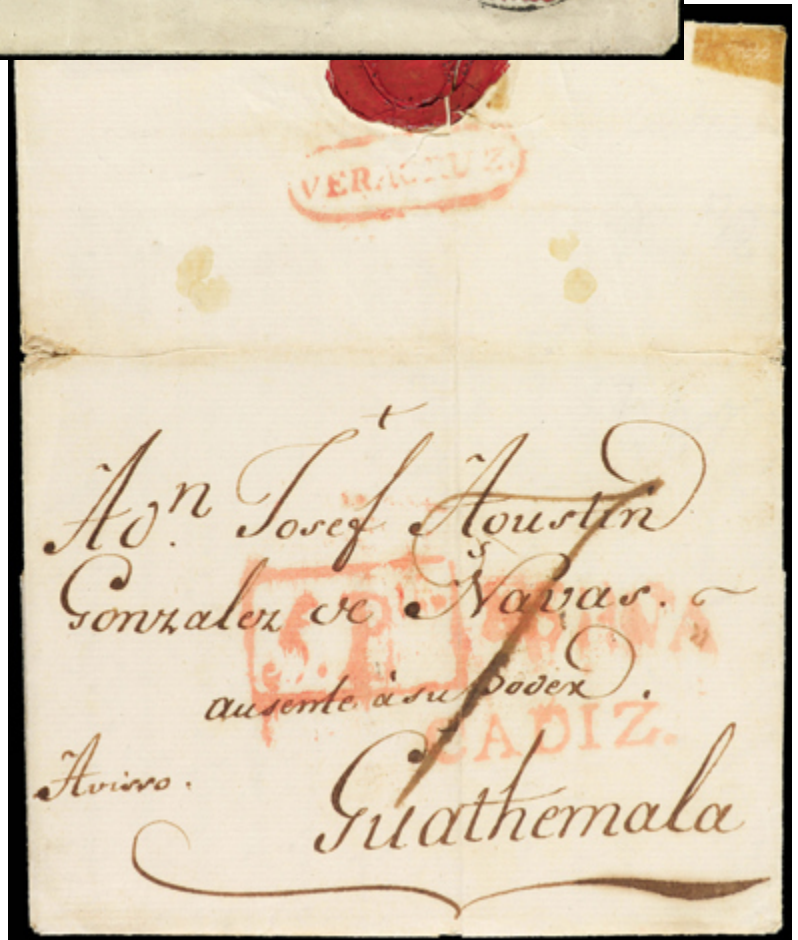 VERACRUZ.
A Dn. Josef Agustin
Gonzalez de Navas.
ausente á su Poder.
CADIZ.
Avisso.
Guathemala
7